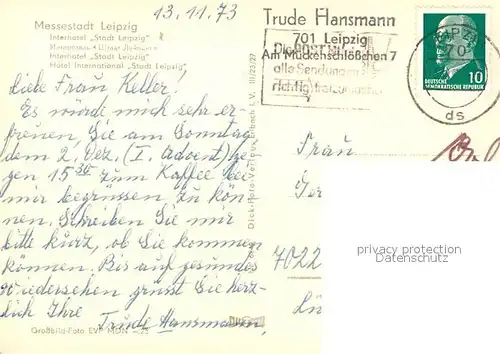 13.11.73
Messestadt Leipzig
Interhotel „Stadt Leipzig"
Interhotel „Stadt Leipzig"
Hôtel International „Stadt Leipzig"
Trude Hansmann
701 Leipzig
Am Mückenschlößchen 7
alle Sendungen
richtig freizumachen
DEUTSCHE
DEMOKRATISCHE REPUBLIK
10
70
ds
Liebe Frau Keller!
Es würde mich sehr er-
freuen, Sie am Sonntag
dem 2. Dez. (I. Advent) ge-
gen 15³⁰ zum Kaffee bei
mir begrüssen zu kön-
nen. Schreiben Sie mir
bitte kurz, ob Sie kommen
können. Bis auf gesundes
Wiedersehen grüsst Sie herz-
lich Ihre
Trude Hansmann
Frau
7022
privacy protection
Datenschutz
Großbild-Foto EVP MDN -,25